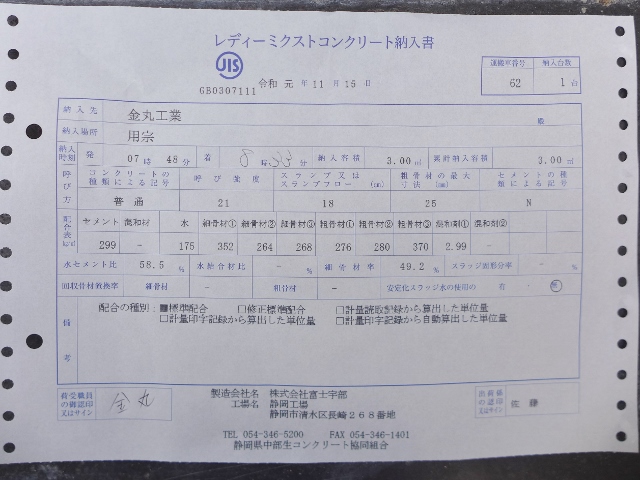 レディーミクストコンクリート納入書
JIS
GB0307111 令和 元 年 11 月 15 日
運搬車番号 納入台数
62 1 台
納入先 金丸工業 殿
納入場所 用宗
納入時刻 発 07時 48分 着 8時33分 納入容積 3.00㎥ 累計納入容積 3.00㎥
呼び方 コンクリートの種類による記号 呼び強度 スランプ又はスランプフロー (cm) 粗骨材の最大寸法 (mm) セメントの種類による記号
普通 21 18 25 N
配合表 kg/㎥ セメント 混和材 水 細骨材① 細骨材② 細骨材③ 粗骨材① 粗骨材② 粗骨材③ 混和剤① 混和剤②
299 - 175 352 264 268 276 280 370 2.99 -
水セメント比 58.5 % 水結合材比 - % 細骨材率 49.2 % スラッジ固形分率 - %
回収骨材置換率 細骨材 - 粗骨材 - 安定化スラッジ水の使用の 有・無
備考
配合の種別:■標準配合 □修正標準配合 □計量読取記録から算出した単位量
□計量印字記録から算出した単位量 □計量印字記録から自動算出した単位量
荷受職員の御認印又はサイン 金丸
製造会社名 株式会社富士宇部
工場名 静岡工場
静岡市清水区長崎268番地
出荷係の認印又はサイン 佐藤
TEL 054-346-5200 FAX 054-346-1401
静岡県中部生コンクリート協同組合